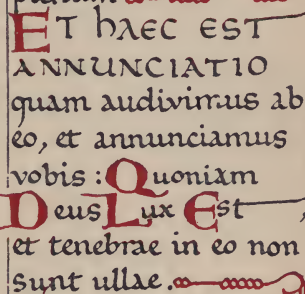 ET hAEC EST
ANNUNCIATIO
quam audivimus ab
eo, et annunciamus
vobis : Quoniam
Deus Lux Est,
et tenebrae in eo non
sunt ullae.